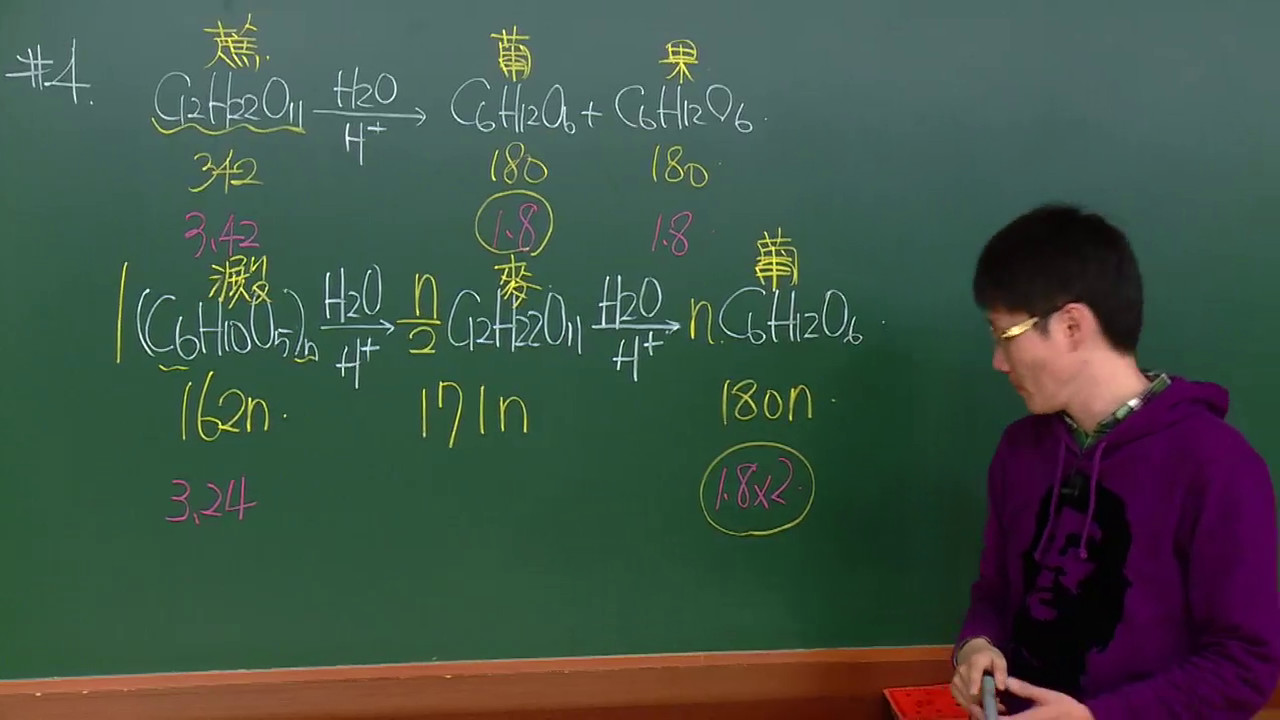 #4.
蔗 葡 果
C12H22O11 H2O/H+ → C6H12O6 + C6H12O6.
342 180 180
3.42 1.8 1.8
澱 麥 葡
1(C6H10O5)n H2O/H+ → n/2 C12H22O11 H2O/H+ → n C6H12O6.
162n 171n 180n
3.24 1.8×2